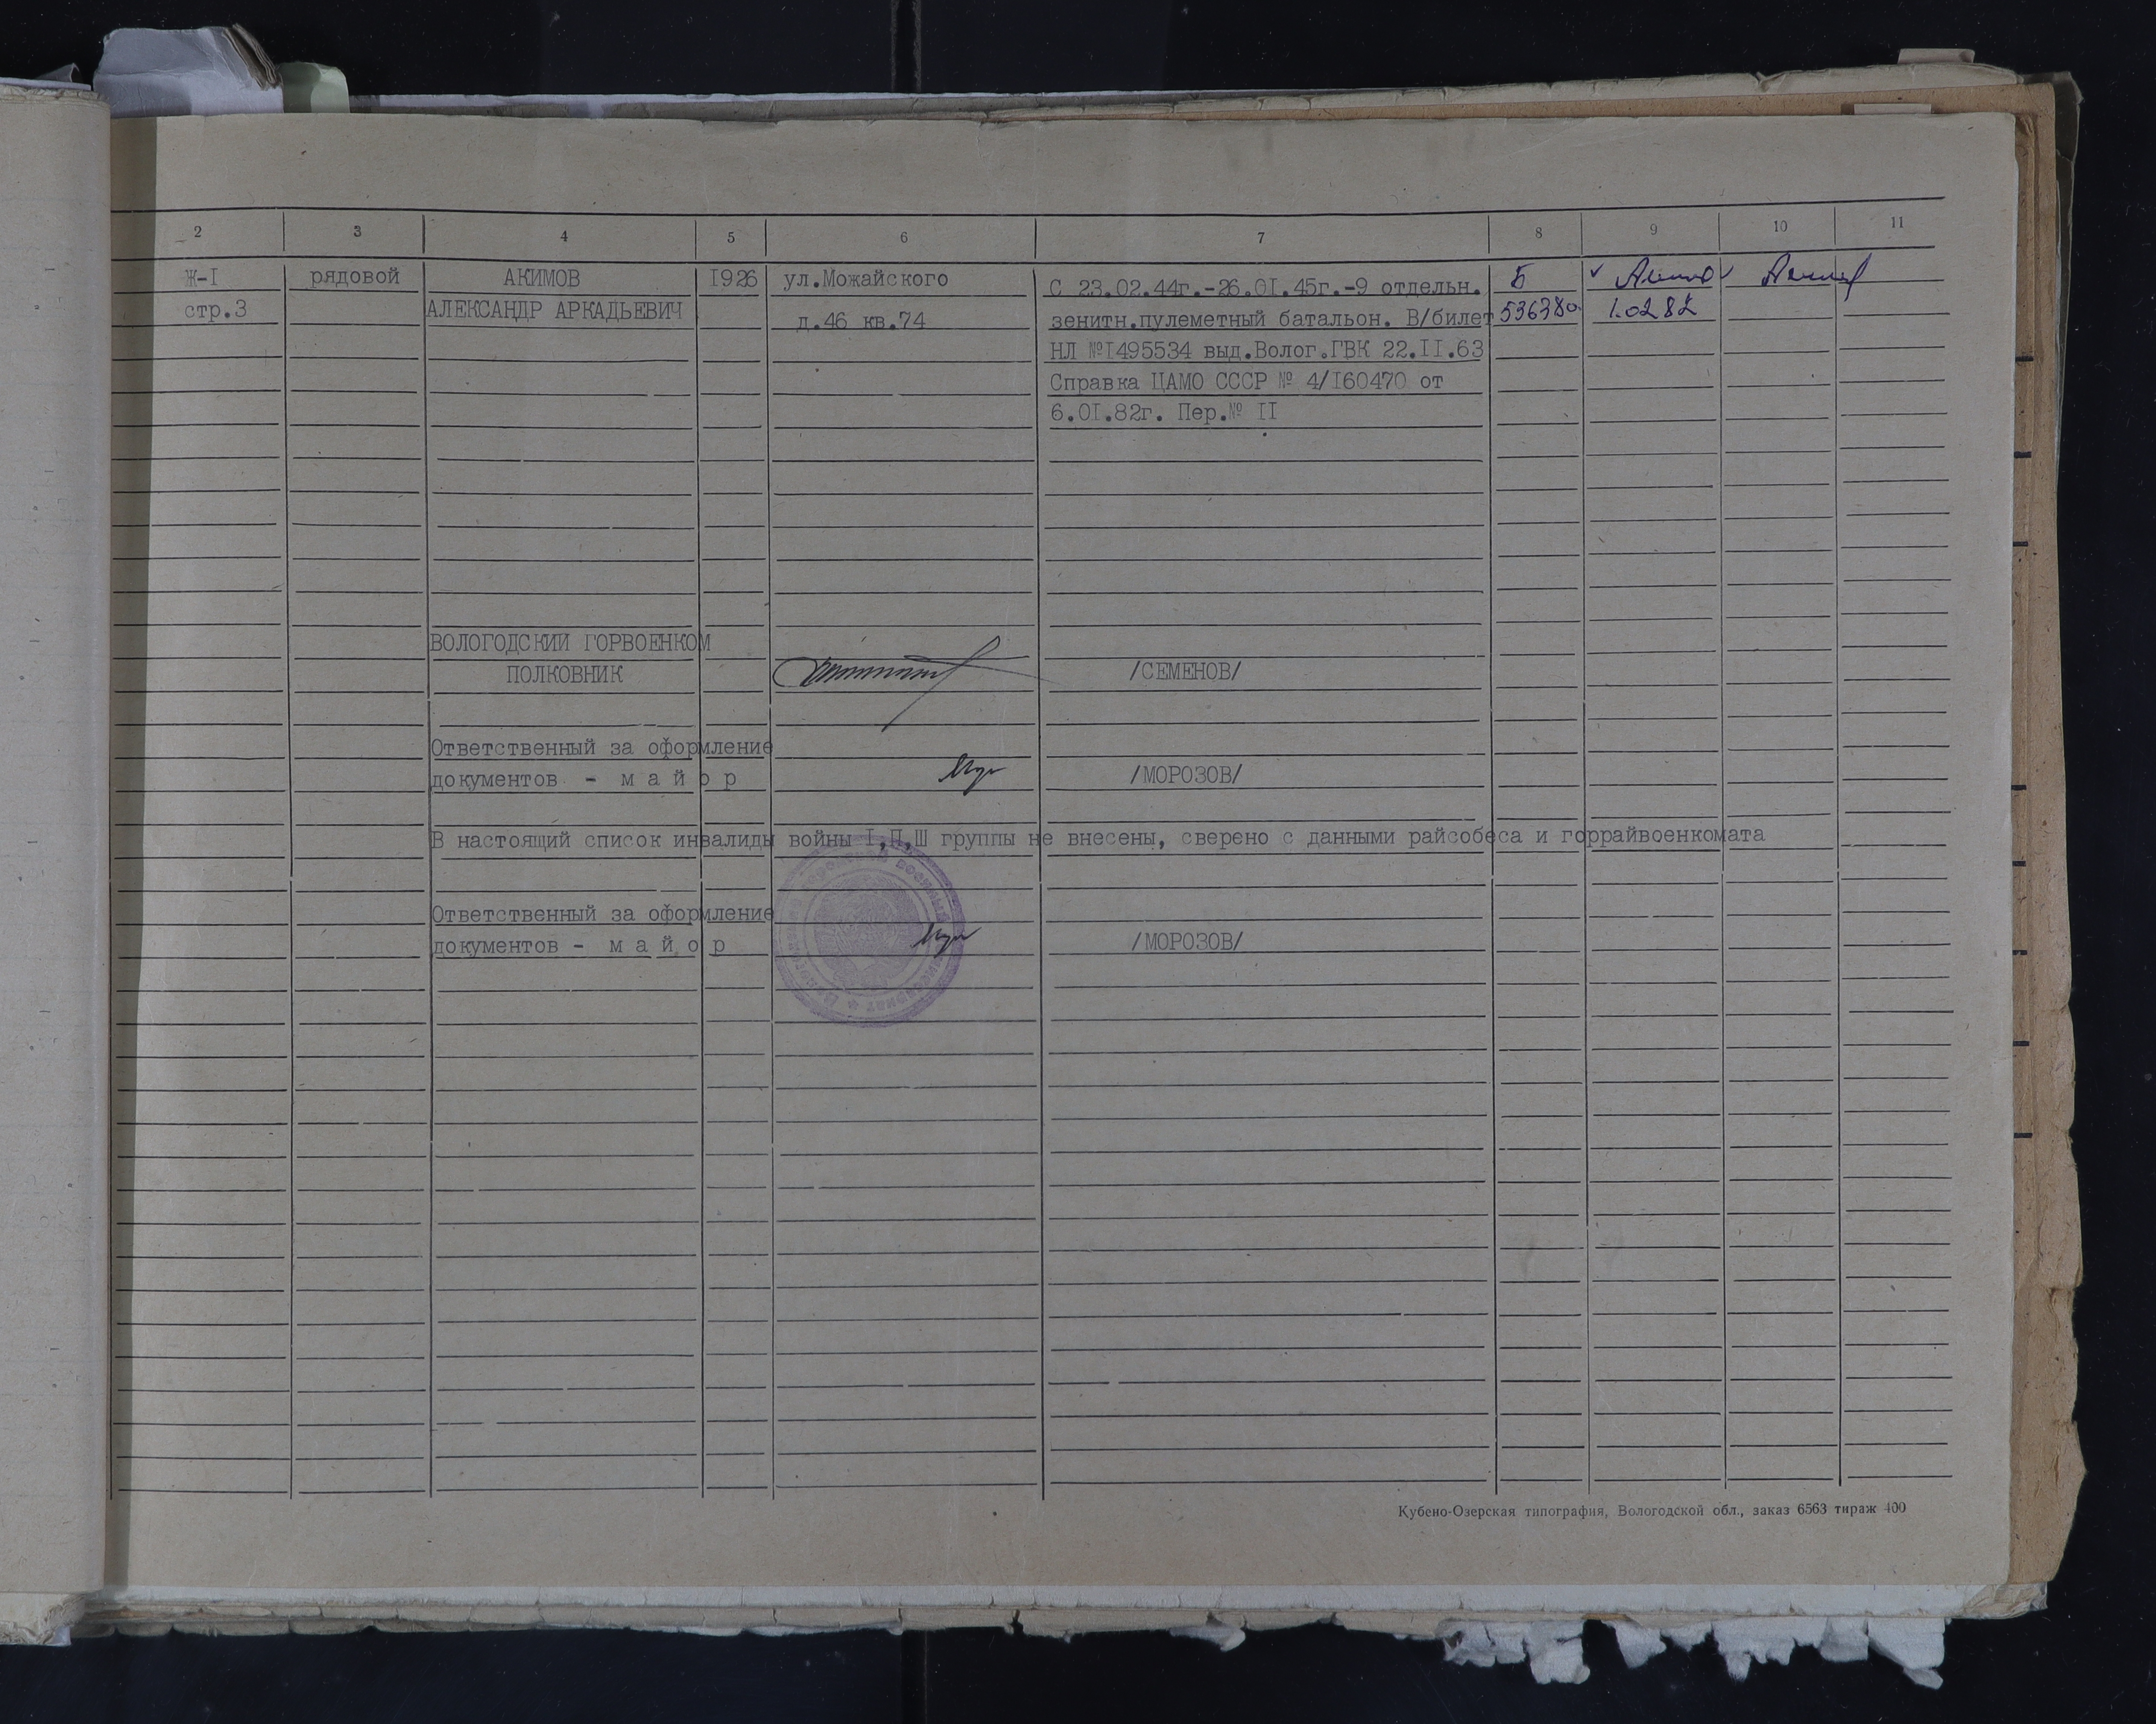 2 3 4 5 6 7 8 9 10 11
Ж-I рядовой АКИМОВ 1926 ул.Можайского С 23.02.44г.-26.0I.45г.-9 отдельн. Б
стр.3 АЛЕКСАНДР АРКАДЬЕВИЧ д.46 кв.74 зенитн.пулеметный батальон. В/билет 536380 1.02 82
НЛ №I495534 выд.Волог.ГВК 22.II.63
Справка ЦАМО СССР № 4/I60470 от
6.0I.82г. Пер.№ II
ВОЛОГОДСКИЙ ГОРВОЕНКОМ
ПОЛКОВНИК /СЕМЕНОВ/
Ответственный за оформление
документов - м а й о р /МОРОЗОВ/
В настоящий список инвалиды войны I,П,Ш группы не внесены, сверено с данными райсобеса и горрайвоенкомата
Ответственный за оформление
документов - м а й о р /МОРОЗОВ/
Кубено-Озерская типография, Вологодской обл., заказ 6563 тираж 400